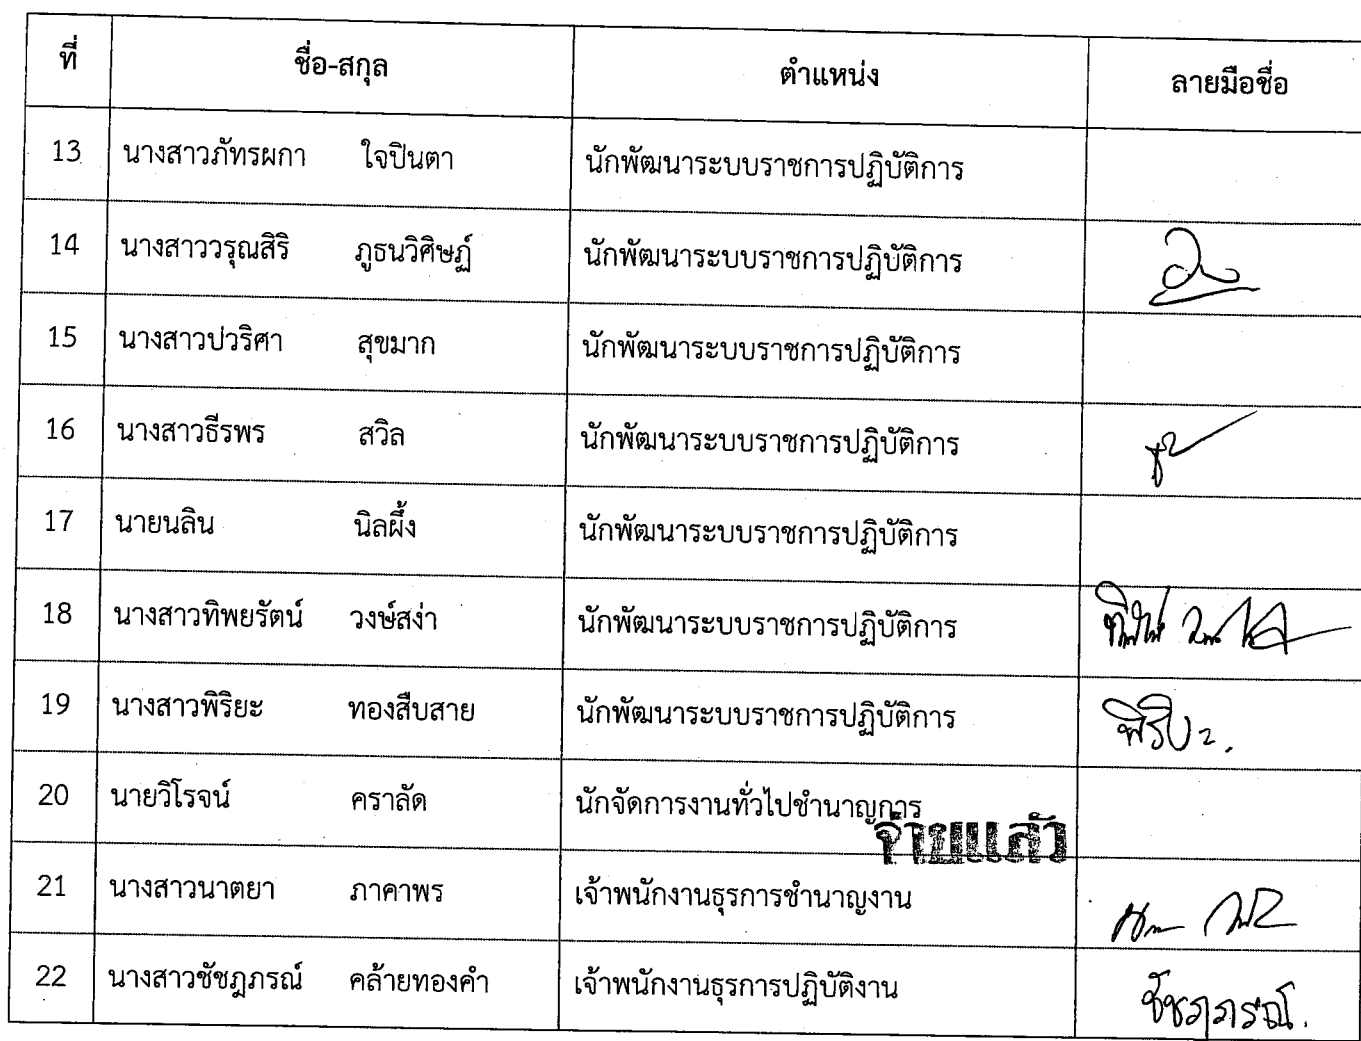 ที่ ชื่อ-สกุล ตำแหน่ง ลายมือชื่อ
13 นางสาวภัทรผกา ใจปินตา นักพัฒนาระบบราชการปฏิบัติการ
14 นางสาววรุณสิริ ภูธนวิศิษฏ์ นักพัฒนาระบบราชการปฏิบัติการ
15 นางสาวปวริศา สุขมาก นักพัฒนาระบบราชการปฏิบัติการ
16 นางสาวธีรพร สวิล นักพัฒนาระบบราชการปฏิบัติการ
17 นายนลิน นิลผึ้ง นักพัฒนาระบบราชการปฏิบัติการ
18 นางสาวทิพยรัตน์ วงษ์สง่า นักพัฒนาระบบราชการปฏิบัติการ
19 นางสาวพิริยะ ทองสืบสาย นักพัฒนาระบบราชการปฏิบัติการ พิริยะ
20 นายวิโรจน์ คราลัด นักจัดการงานทั่วไปชำนาญการ
จ่ายแล้ว
21 นางสาวนาตยา ภาคาพร เจ้าพนักงานธุรการชำนาญงาน
22 นางสาวชัชฎภรณ์ คล้ายทองคำ เจ้าพนักงานธุรการปฏิบัติงาน ชัชฎาภรณ์.